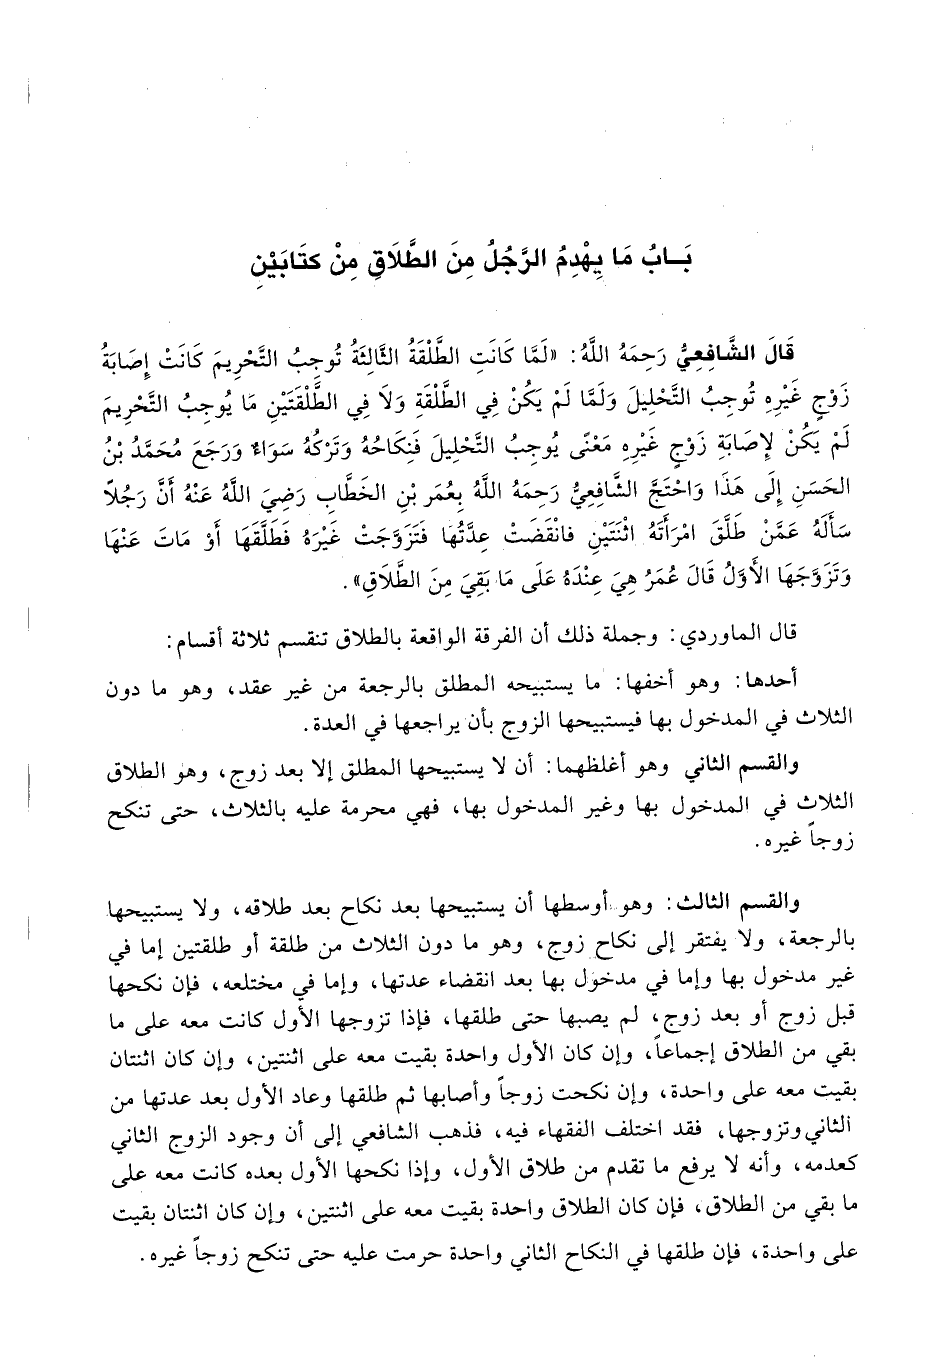 بَــابُ مَا يِهْدِمُ الرَّجُلُ مِنَ الطَّلَاقِ مِنْ كتَابَيْنِ
قَالَ الشَّافِعِيُّ رَحِمَهُ اللَّهُ: «لَمَّا كَانَتِ الطَّلْقَةُ الثَّالِثَةُ تُوجِبُ التَّحْرِيمَ كَانَتْ إِصَابَةُ
زَوْجٍ غَيْرِهِ تُوجِبُ التَّحْلِيلَ وَلَمَّا لَمْ يَكُنْ فِي الطَّلْقَةِ وَلَا فِي الطَّلْقَتَيْنِ مَا يُوجِبُ التَّحْرِيمَ
لَمْ يَكُنْ لِإِصَابَةِ زَوْجٍ غَيْرِهِ مَعْنًى يُوجِبُ التَّحْلِيلَ فَنِكَاحُهُ وَتَرْكُهُ سَوَاءٌ وَرَجَعَ مُحَمَّدُ بْنُ
الحَسَنِ إِلَى هَذَا وَاحْتَجَّ الشَّافِعِيُّ رَحِمَهُ اللَّهُ بِعُمَر بْنِ الخَطَّابِ رَضِيَ اللَّهُ عَنْهُ أَنَّ رَجُلاً
سَأَلَهُ عَمَّنْ طَلَّقَ امْرَأَتَهُ اثْنَتَيْنِ فَانْقَضَتْ عِدَّتُهَا فَتَزَوَّجَتْ غَيْرَهُ فَطَلَّقَهَا أَوْ مَاتَ عَنْهَا
وَتَزَوَّجَهَا الأَوَّلُ قَالَ عُمَرُ هِيَ عِنْدَهُ عَلَى مَا بَقِيَ مِنَ الطَّلَاقِ».
قال الماوردي: وجملة ذلك أن الفرقة الواقعة بالطلاق تنقسم ثلاثة أقسام:
أحدها: وهو أخفها: ما يستبيحه المطلق بالرجعة من غير عقد، وهو ما دون
الثلاث في المدخول بها فيستبيحها الزوج بأن يراجعها في العدة.
والقسم الثاني وهو أغلظهما: أن لا يستبيحها المطلق إلا بعد زوج، وهو الطلاق
الثلاث في المدخول بها وغير المدخول بها، فهي محرمة عليه بالثلاث، حتى تنكح
زوجاً غيره.
والقسم الثالث: وهو أوسطها أن يستبيحها بعد نكاح بعد طلاقه، ولا يستبيحها
بالرجعة، ولا يفتقر إلى نكاح زوج، وهو ما دون الثلاث من طلقة أو طلقتين إما في
غير مدخول بها وإما في مدخول بها بعد انقضاء عدتها، وإما في مختلعه، فإن نكحها
قبل زوج أو بعد زوج، لم يصبها حتى طلقها، فإذا تزوجها الأول كانت معه على ما
بقي من الطلاق إجماعاً، وإن كان الأول واحدة بقيت معه على اثنتين، وإن كان اثنتان
بقيت معه على واحدة، وإن نكحت زوجاً وأصابها ثم طلقها وعاد الأول بعد عدتها من
الثاني وتزوجها، فقد اختلف الفقهاء فيه، فذهب الشافعي إلى أن وجود الزوج الثاني
كعدمه، وأنه لا يرفع ما تقدم من طلاق الأول، وإذا نكحها الأول بعده كانت معه على
ما بقي من الطلاق، فإن كان الطلاق واحدة بقيت معه على اثنتين، وإن كان اثنتان بقيت
على واحدة، فإن طلقها في النكاح الثاني واحدة حرمت عليه حتى تنكح زوجاً غيره.